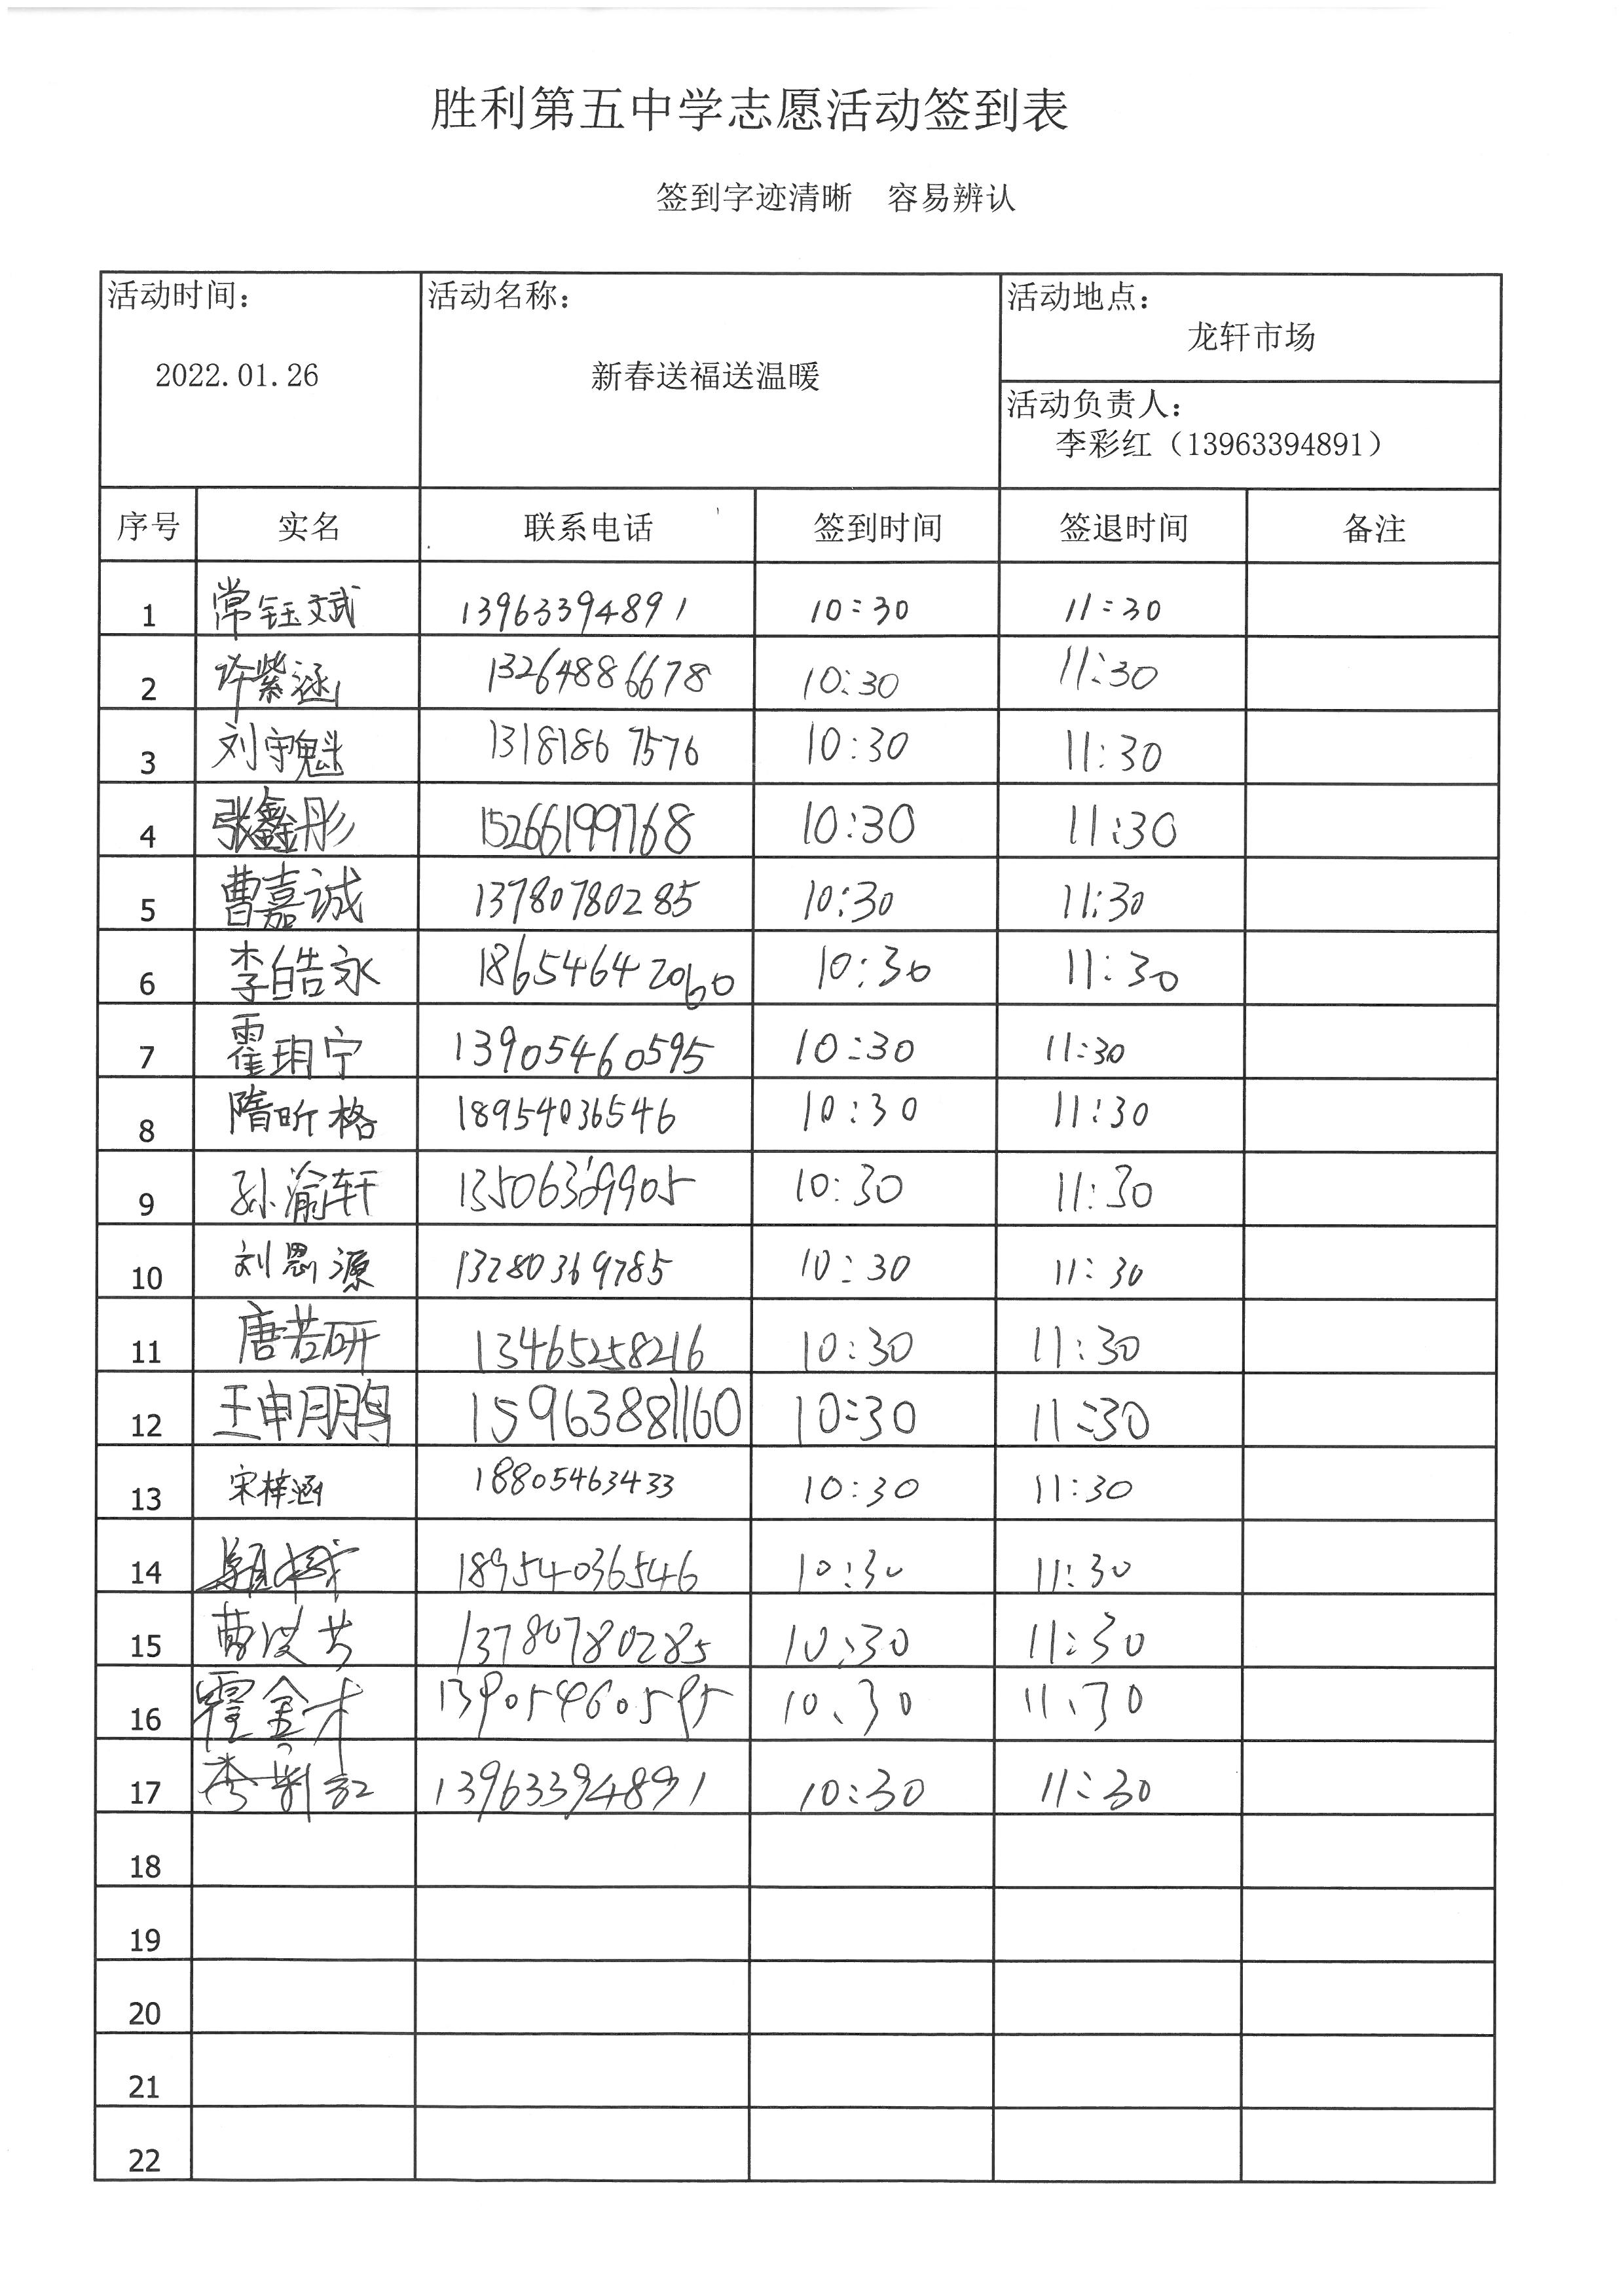 胜利第五中学志愿活动签到表
签到字迹清晰 容易辨认
活动时间: 活动名称: 活动地点:
龙轩市场
2022.01.26 新春送福送温暖
活动负责人:
李彩红（13963394891）
序号 实名 联系电话 签到时间 签退时间 备注
1 常钰斌 13963394891 10:30 11:30
2 许紫涵 13264886678 10:30 11:30
3 刘宇魁 13181867576 10:30 11:30
4 张鑫彤 15266199768 10:30 11:30
5 曹嘉诚 13780780285 10:30 11:30
6 李皓永 18654642060 10:30 11:30
7 霍玥宁 13905460595 10:30 11:30
8 隋昕格 18954036546 10:30 11:30
9 孙渝轩 10:30 11:30
10 刘恩源 13280369785 10:30 11:30
11 唐若研 13465258216 10:30 11:30
12 王申 15963881160 10:30 11:30
13 宋梓涵 18805463433 10:30 11:30
14 18954036546 10:30 11:30
15 曹 13780780285 10:30 11:30
16 霍金才 13905460595 10:30 11:30
17 李彩红 13963394891 10:30 11:30
18
19
20
21
22